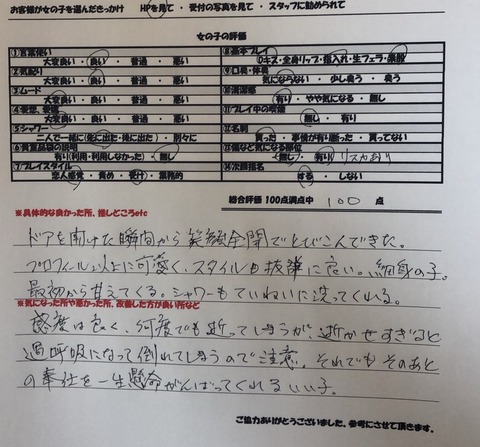 お客様が女の子を選んだきっかけ　HPを見て ・ 受付の写真を見て ・ スタッフに勧められて
女の子の評価
①言葉使い
大変良い ・ 良い ・ 普通 ・ 悪い
②気配り
大変良い ・ 良い ・ 普通 ・ 悪い
③ムード
大変良い ・ 良い ・ 普通 ・ 悪い
④愛想、愛嬌
大変良い ・ 良い ・ 普通 ・ 悪い
⑤シャワー
二人で一緒に(先に出た・後に出た) ・ 別々に
⑥貴重品袋の説明
有り(利用・利用しなかった) ・ 無し
⑦プレイスタイル
恋人感覚 ・ 責め ・ 受け ・ 業務的
⑧基本プレイ
Dキス・全身リップ・指入れ・生フェラ・素股
⑨口臭・体臭
気にならない ・ 少し臭う ・ 臭う
⑩清潔感
有り ・ やや気になる ・ 無し
⑪プレイ中の喫煙
無し ・ 有り
⑫名刺
貰った ・ 事情が有り断った ・ 貰ってない
⑬傷など気になる部位
無し ・ 有り リスカあり
⑭次回指名
する ・ しない
総合評価 100点満点中　100　点
※具体的な良かった所、推しどころetc
ドアを開けた瞬間から笑顔全開でとびこんできた。
プロフィール以上に可愛く、スタイルも抜群に良い。細身の子。
最初から甘えてくる。シャワーもていねいに洗ってくれる。
※気になった所や悪かった所、改善した方が良い所など
感度は良く、何度でも逝ってしまうが、逝かせすぎると
過呼吸になって倒れてしまうので注意。それでもそのあと
の奉仕を一生懸命がんばってくれるいい子。
ご協力ありがとうございました、参考にさせて頂きます。